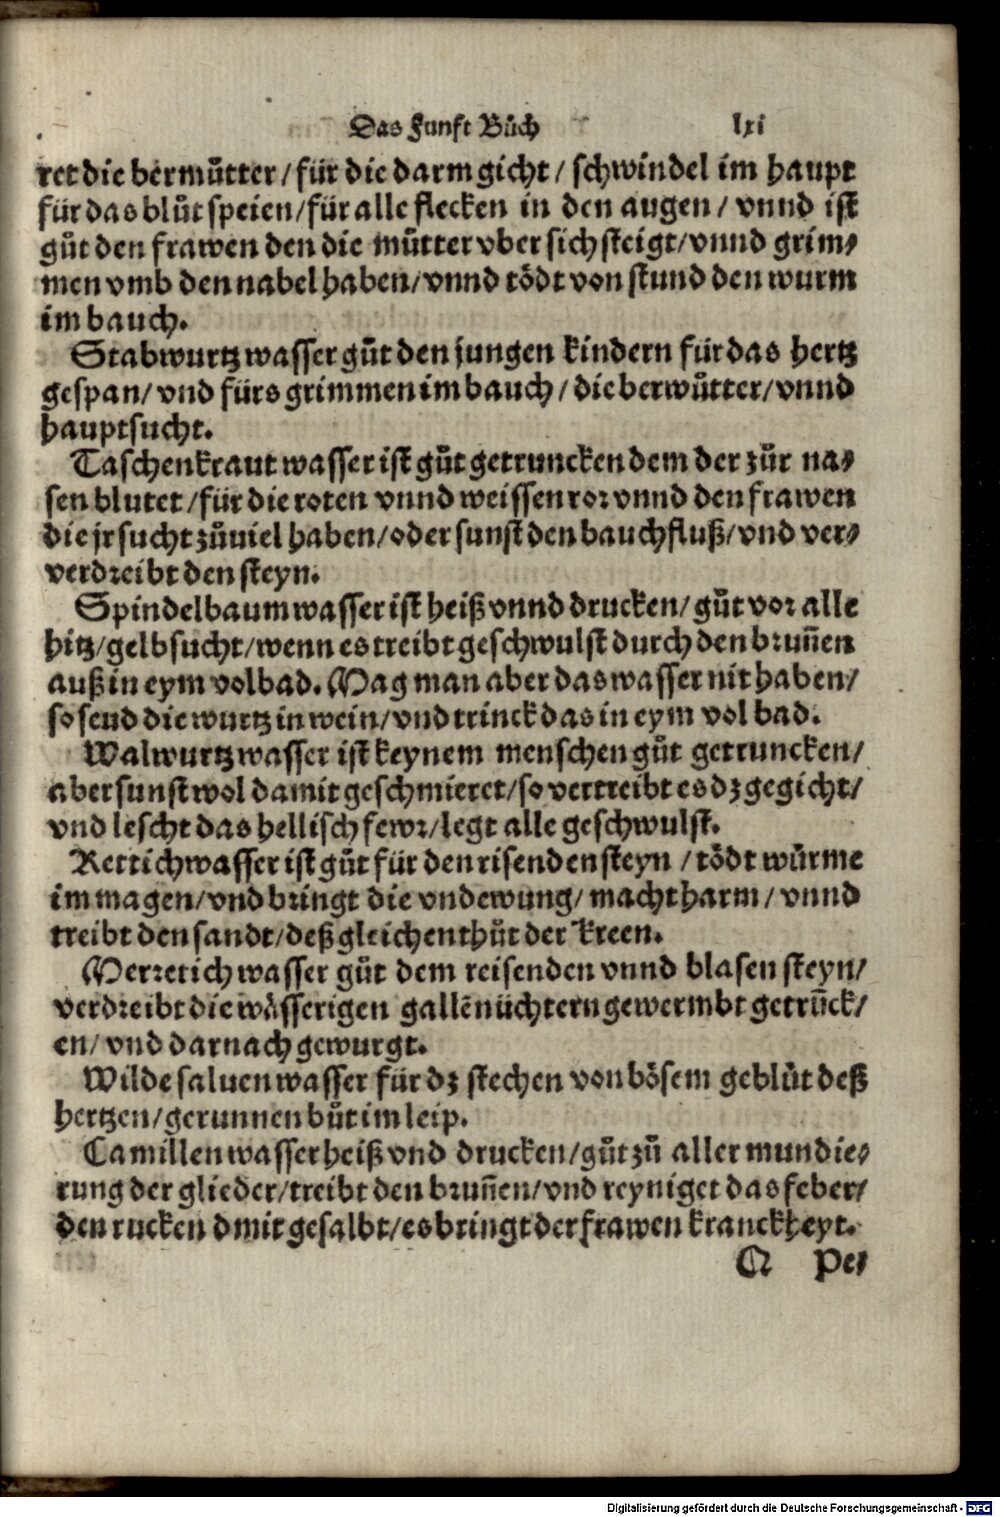 Das Funft Bůch lxi
ret die bermůtter/für die darm gicht/ schwindel im haupt
für das blůt speien/für alle flecken in den augen/ vnnd ist
gůt den frawen den die můtter vber sich steigt/vnnd grim⸗
men vmb den nabel haben/vnnd tödt von stund den wurm
im bauch.
Stabwurtz wasser gůt den jungen kindern für das hertz
gespan/ vnd fürs grimmen im bauch/ die berwůtter/vnnd
hauptsucht.
Taschenkraut wasser ist gůt getruncken dem der zůr na⸗
sen blutet/für die roten vnnd weissen ror vnnd den frawen
die jr sucht zůuiel haben/oder sunst den bauchfluß/vnd ver⸗
verdreibt den steyn.
Spindelbaum wasser ist heiß vnnd drucken/ gůt vor alle
hitz/gelbsucht/wenn es treibt geschwulst durch den brun̄en
auß in eym volbad. Mag man aber das wasser nit haben/
so seud die wurtz in wein/vnd trinck das in eym vol bad.
Walwurtz wasser ist keynem menschen gůt getruncken/
aber sunst wol damit geschmieret/so vertreibt es dz gegicht/
vnd lescht das hellisch fewr/legt alle geschwulst.
Rettich wasser ist gůt für den risenden steyn /tödt würme
im magen/vnd bringt die vndewung/ macht harm/ vnnd
treibt den sandt/deßgleichen thůt der kreen.
Merretich wasser gůt dem reisenden vnnd blasen steyn/
verdreibt die wässerigen gallē nüchtern gewermbt getrūck/
en/ vnd darnach gewurgt.
Wilde saluen wasser für dz stechen von bösem geblůt deß
hertzen/gerunnen bůt im leip.
Camillen wasser heiß vnd drucken/gůt zů aller mundie⸗
rung der glieder/treibt den brun̄en/vnd reyniget das feber/
den rucken dmit gesalbt/es bringt der frawen kranckheyt.
Q Pe⸗
Digitalisierung gefördert durch die Deutsche Forschungsgemeinschaft - DFG